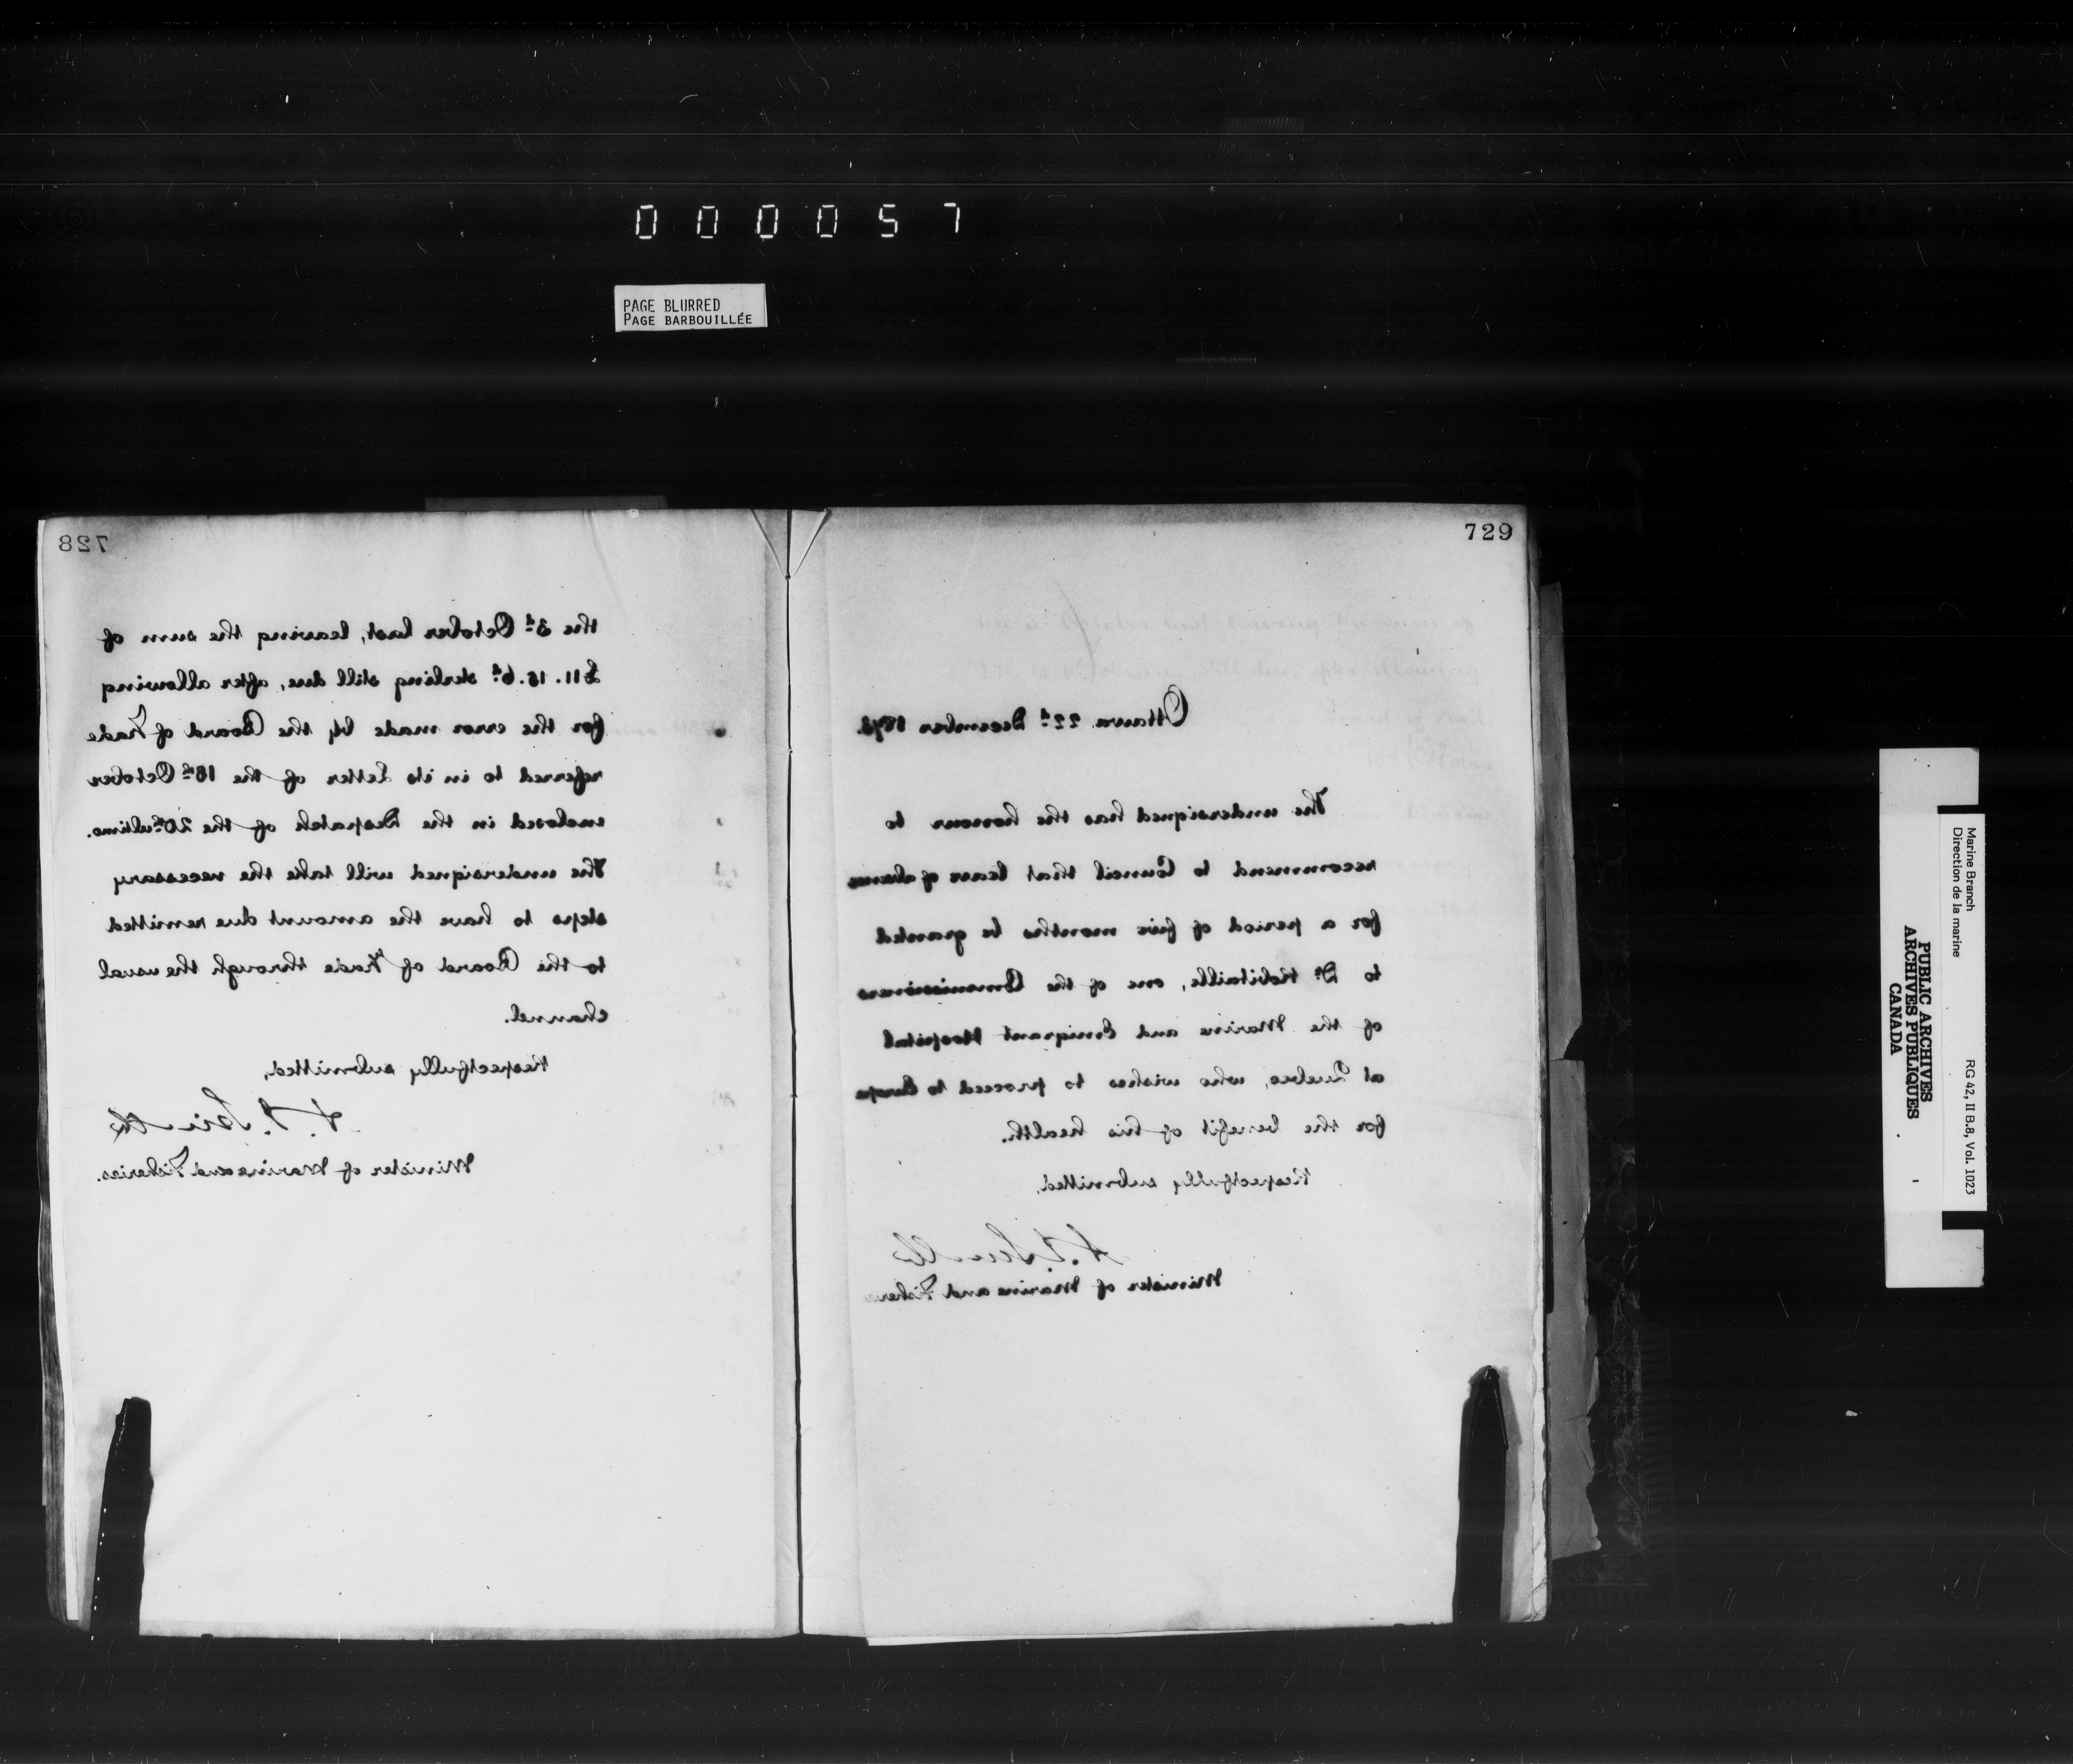 000057
PAGE BLURRED
PAGE BARBOUILLÉE
728
the 3d October last, leaving the sum of
£11.15.6d sterling still due, after allowing
for the error made by the Board of Trade
referred to in its Letter of the 18th October
enclosed in the Despatch of the 20th ultimo.
The undersigned will take the necessary
steps to have the amount due remitted
to the Board of Trade through the usual
channel.
Respectfully submitted,
A. J. Smith
Minister of Marine and Fisheries.
729
Ottawa 22d December 1873.
The undersigned has the honour to
recommend to Council that leave of absence
for a period of five months be granted
to Dr Robitaille, one of the Commissioners
of the Marine and Emigrant Hospital
at Quebec, who wishes to proceed to Europe
for the benefit of his health.
Respectfully submitted,
A. J. Smith
Minister of Marine and Fisheries
Marine Branch
Direction de la marine
RG 42, II B.8, Vol. 1023
PUBLIC ARCHIVES
ARCHIVES PUBLIQUES
CANADA